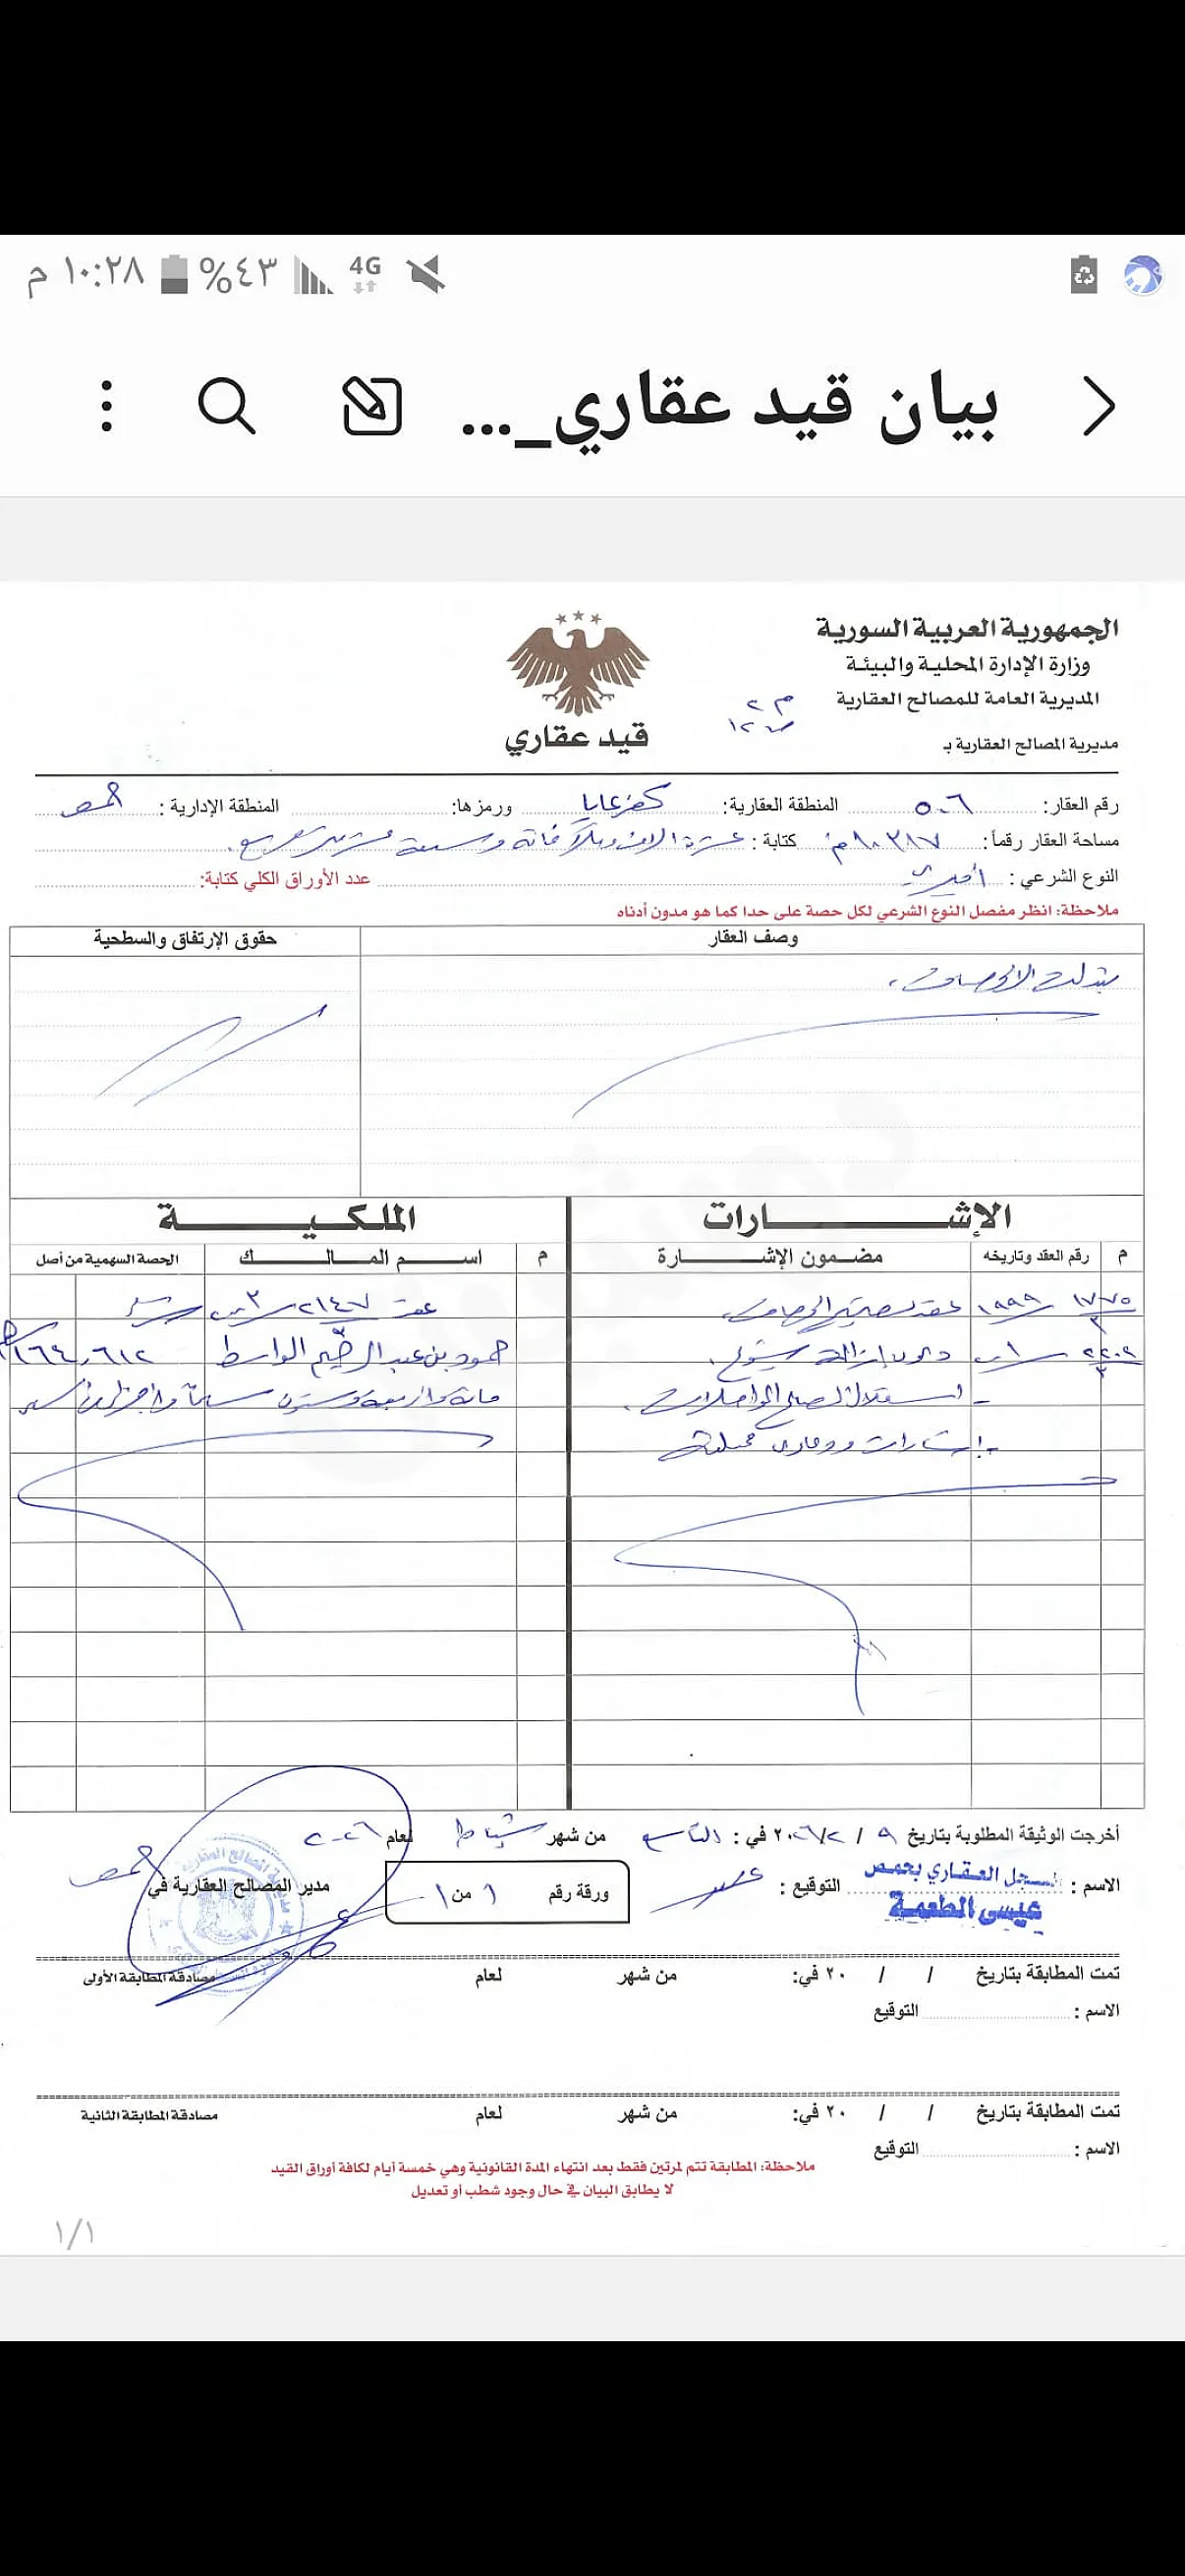 ١٠:٢٨ م ٤٣% 4G
بيان قيد عقاري_...
الجمهورية العربية السورية
وزارة الإدارة المحلية والبيئة
المديرية العامة للمصالح العقارية
مديرية المصالح العقارية بـ
قيد عقاري
رقم العقار: ٥٠٦ المنطقة العقارية: كفرعايا ورمزها: المنطقة الإدارية: حمص
مساحة العقار رقماً: ١٠٣٨٧ م٢ كتابة: عشرة الاف وثلاثمائة و
النوع الشرعي: أميري عدد الأوراق الكلي كتابة:
ملاحظة: انظر مفصل النوع الشرعي لكل حصة على حدا كما هو مدون أدناه
وصف العقار حقوق الإرتفاق والسطحية
تبدلت الاوصاف.
الإشـارات الملكيـة
م رقم العقد وتاريخه مضمون الإشـارة م اسـم المـالـك الحصة السهمية من أصل
١٧٧٥ ١٩٩٩ عقد ٢١٤٧
دعوى إزالة شيوع. حمود بن عبد الرحيم الواسط ١٦٤,٦١٢
مائة واربعة وستون سهما
- إشارات ودعاوى
أخرجت الوثيقة المطلوبة بتاريخ ٩ / ٢ / ٢٠٢٦ في: التاسع من شهر شباط لعام ٢٠٢٦
الاسم: السجل العقاري بحمص التوقيع: ورقة رقم ١ من ١ مدير المصالح العقارية في حمص
عيسى الطعمة
تمت المطابقة بتاريخ / / ٢٠ في: من شهر لعام مصادقة المطابقة الأولى
الاسم: التوقيع
تمت المطابقة بتاريخ / / ٢٠ في: من شهر لعام مصادقة المطابقة الثانية
الاسم: التوقيع
ملاحظة: المطابقة تتم لمرتين فقط بعد انتهاء المدة القانونية وهي خمسة أيام لكافة أوراق القيد
لا يطابق البيان في حال وجود شطب أو تعديل
١/١